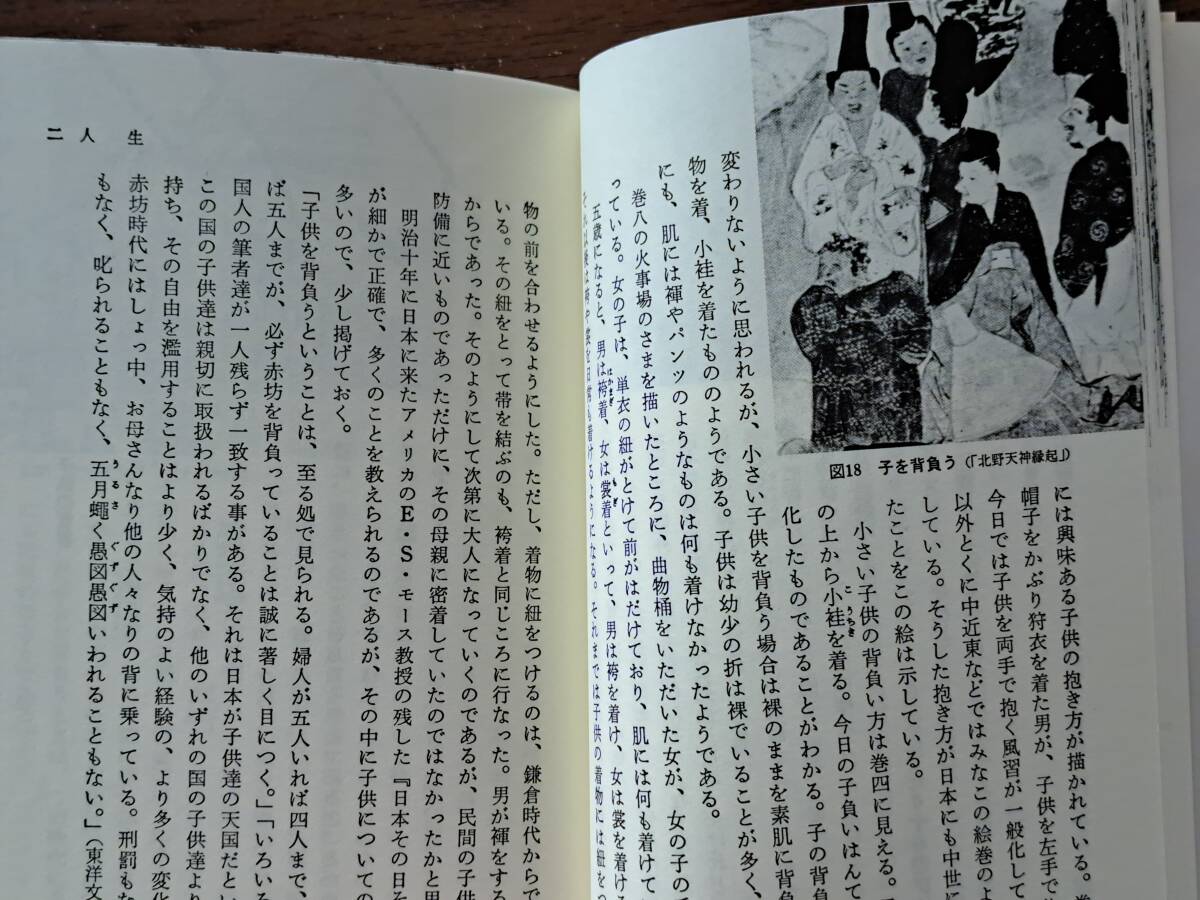 図18　子を背負う(「北野天神縁起」)
には興味ある子供の抱き方が描かれている。
帽子をかぶり狩衣を着た男が、子供を左手で
今日では子供を両手で抱く風習が一般化して
以外とくに中近東などではみなこの絵巻のよ
している。そうした抱き方が日本にも中世に
たことをこの絵は示している。
小さい子供の背負い方は巻四に見える。
の上から小袿を着る。今日の子負いはんて
こうちき
化したものであることがわかる。子の背負
変わりないように思われるが、小さい子供を背負う場合は裸のままを素肌に背負
物を着、小袿を着たもののようである。子供は幼少の折は裸でいることが多く、
にも、肌には褌やパンツのようなものは何も着けなかったようである。
巻八の火事場のさまを描いたところに、曲物桶をいただいた女が、女の子の
っている。女の子は、単衣の紐がとけて前がはだけており、肌には何も着けて
五歳になると、男は袴着、女は裳着といって、男は袴を着け、女は裳を着ける
はかまぎ
もぎ
を日常も着けるようになる。それまでは子供の着物には紐をつ
二 人 生
物の前を合わせるようにした。ただし、着物に紐をつけるのは、鎌倉時代からで
いる。その紐をとって帯を結ぶのも、袴着と同じころに行なった。男が褌をする
からであった。そのようにして次第に大人になっていくのであるが、民間の子供
防備に近いものであっただけに、その母親に密着していたのではなかったかと思
明治十年に日本に来たアメリカのE・S・モース教授の残した『日本その日そ
が細かで正確で、多くのことを教えられるのであるが、その中に子供についての
多いので、少し掲げておく。
「子供を背負うということは、至る処で見られる。婦人が五人いれば四人まで、
ば五人までが、必ず赤坊を背負っていることは誠に著しく目につく。」「いろいろ
国人の筆者達が一人残らず一致する事がある。それは日本が子供達の天国だとい
この国の子供達は親切に取扱われるばかりでなく、他のいずれの国の子供達より
持ち、その自由を濫用することはより少く、気持のよい経験の、より多くの変化
赤坊時代にはしょっ中、お母さんなり他の人々なりの背に乗っている。刑罰もな
もなく、叱られることもなく、五月蠅く愚図愚図いわれることもない。」(東洋文
うるさ
ぐずぐず